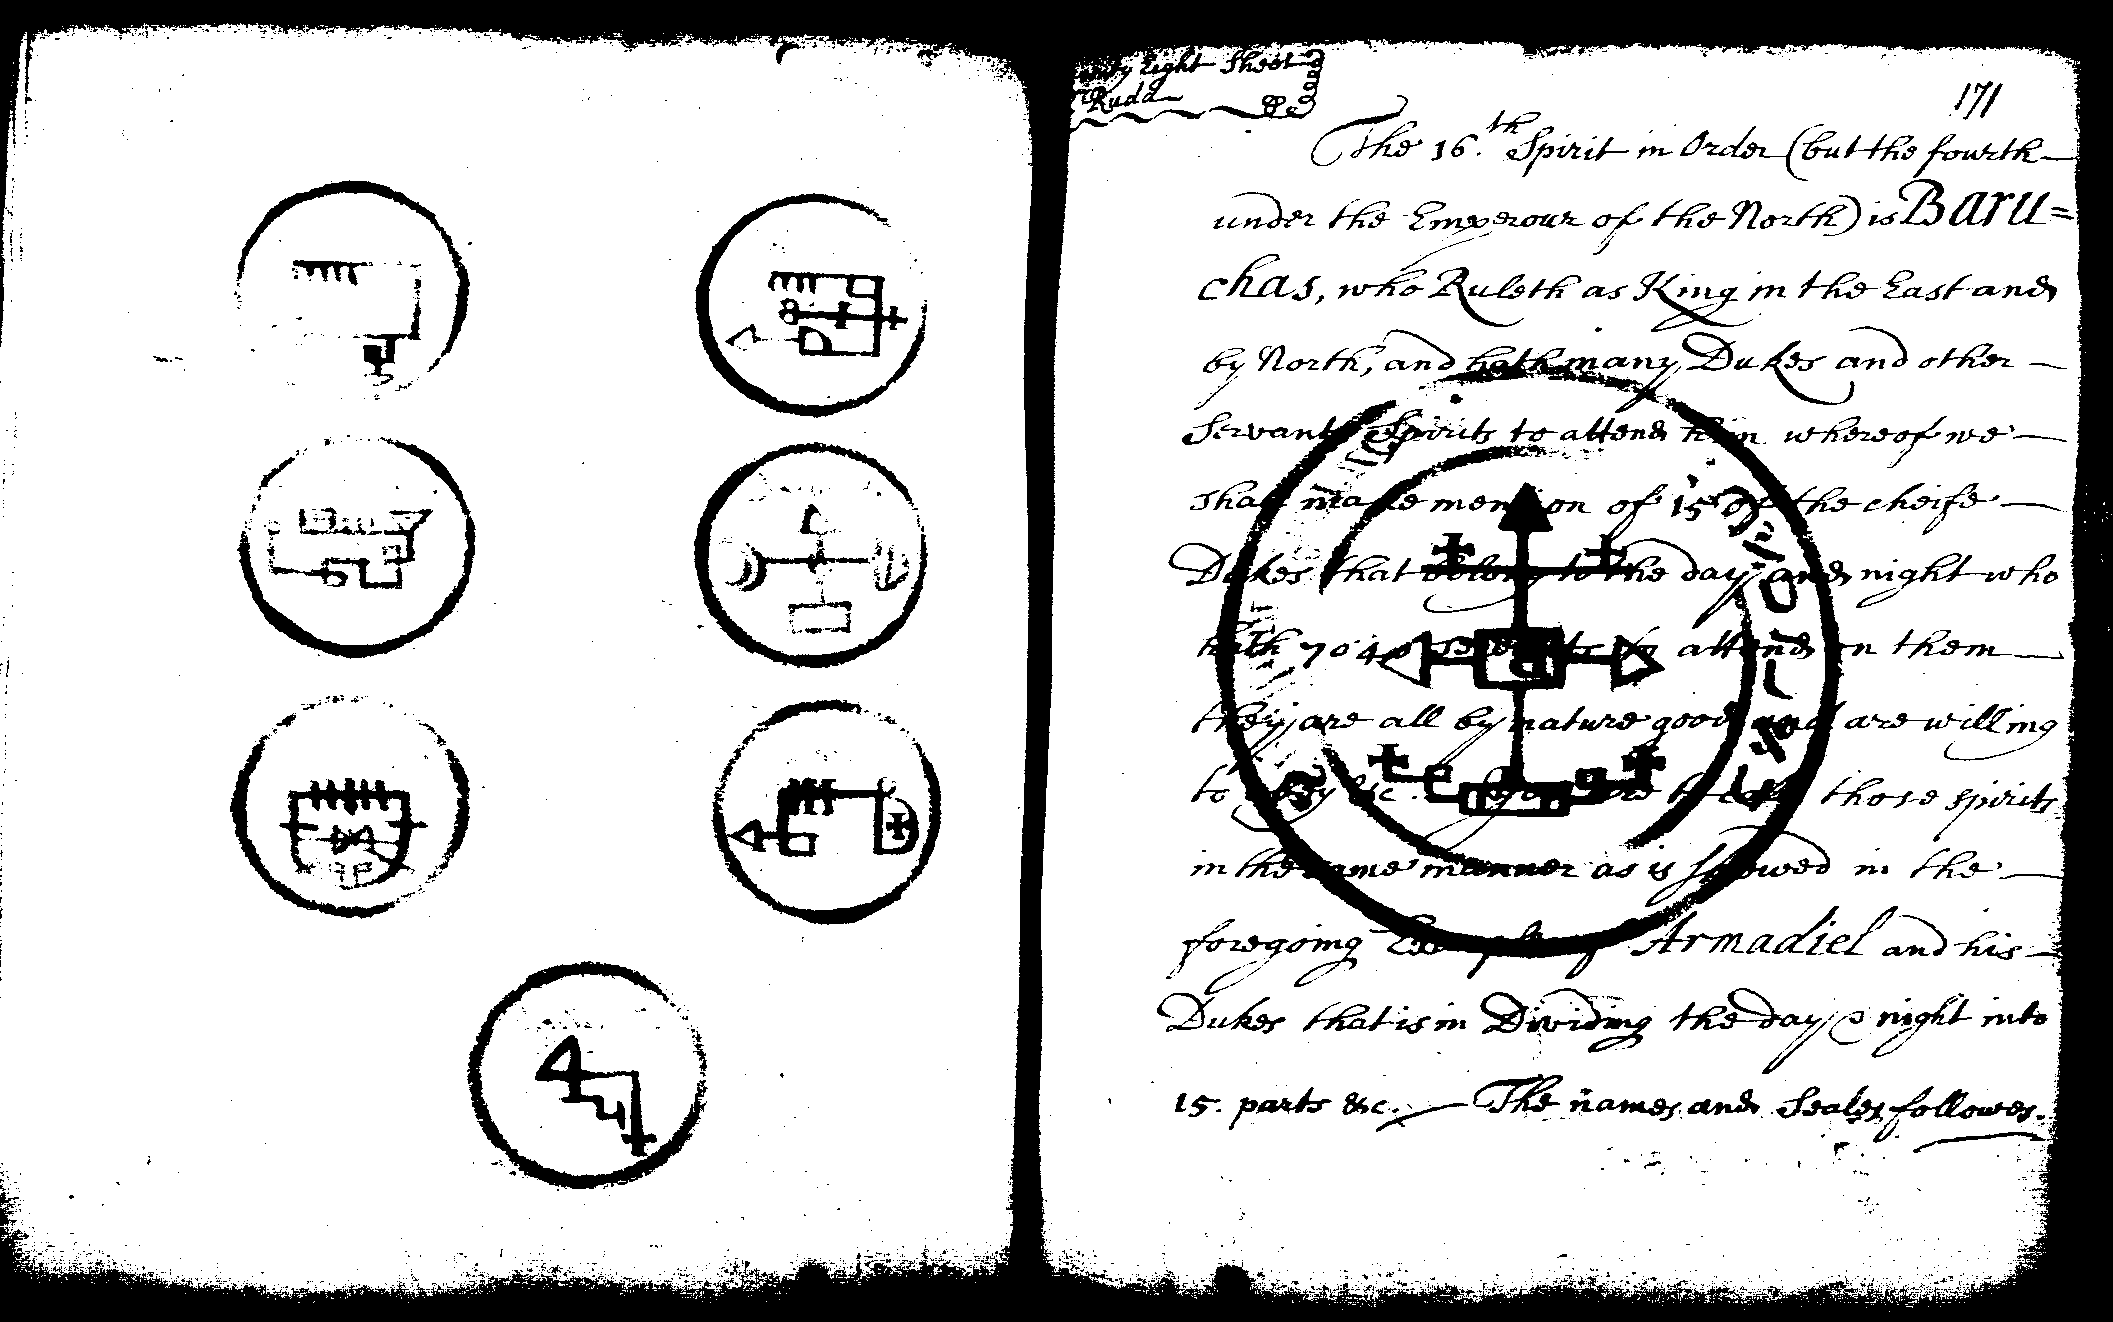 Eight Sheet
Rudd
171
The 16.th Spirit in Order (but the fourth
under the Emperour of the North) is Baru=
chas, who Ruleth as King in the East and
by North, and hath many Dukes and other
Servant Spirits to attend him whereof we
shall make mention of 15 of the cheife
Dukes that belong to the day and night who
hath 7040 servants to attend on them
they are all by nature good and are willing
to obey &c. those spirits
in the same manner as is shewed in the
foregoing Example of Armadiel and his
Dukes that is in Dividing the day & night into
15. parts &c. The names and Seales followes.